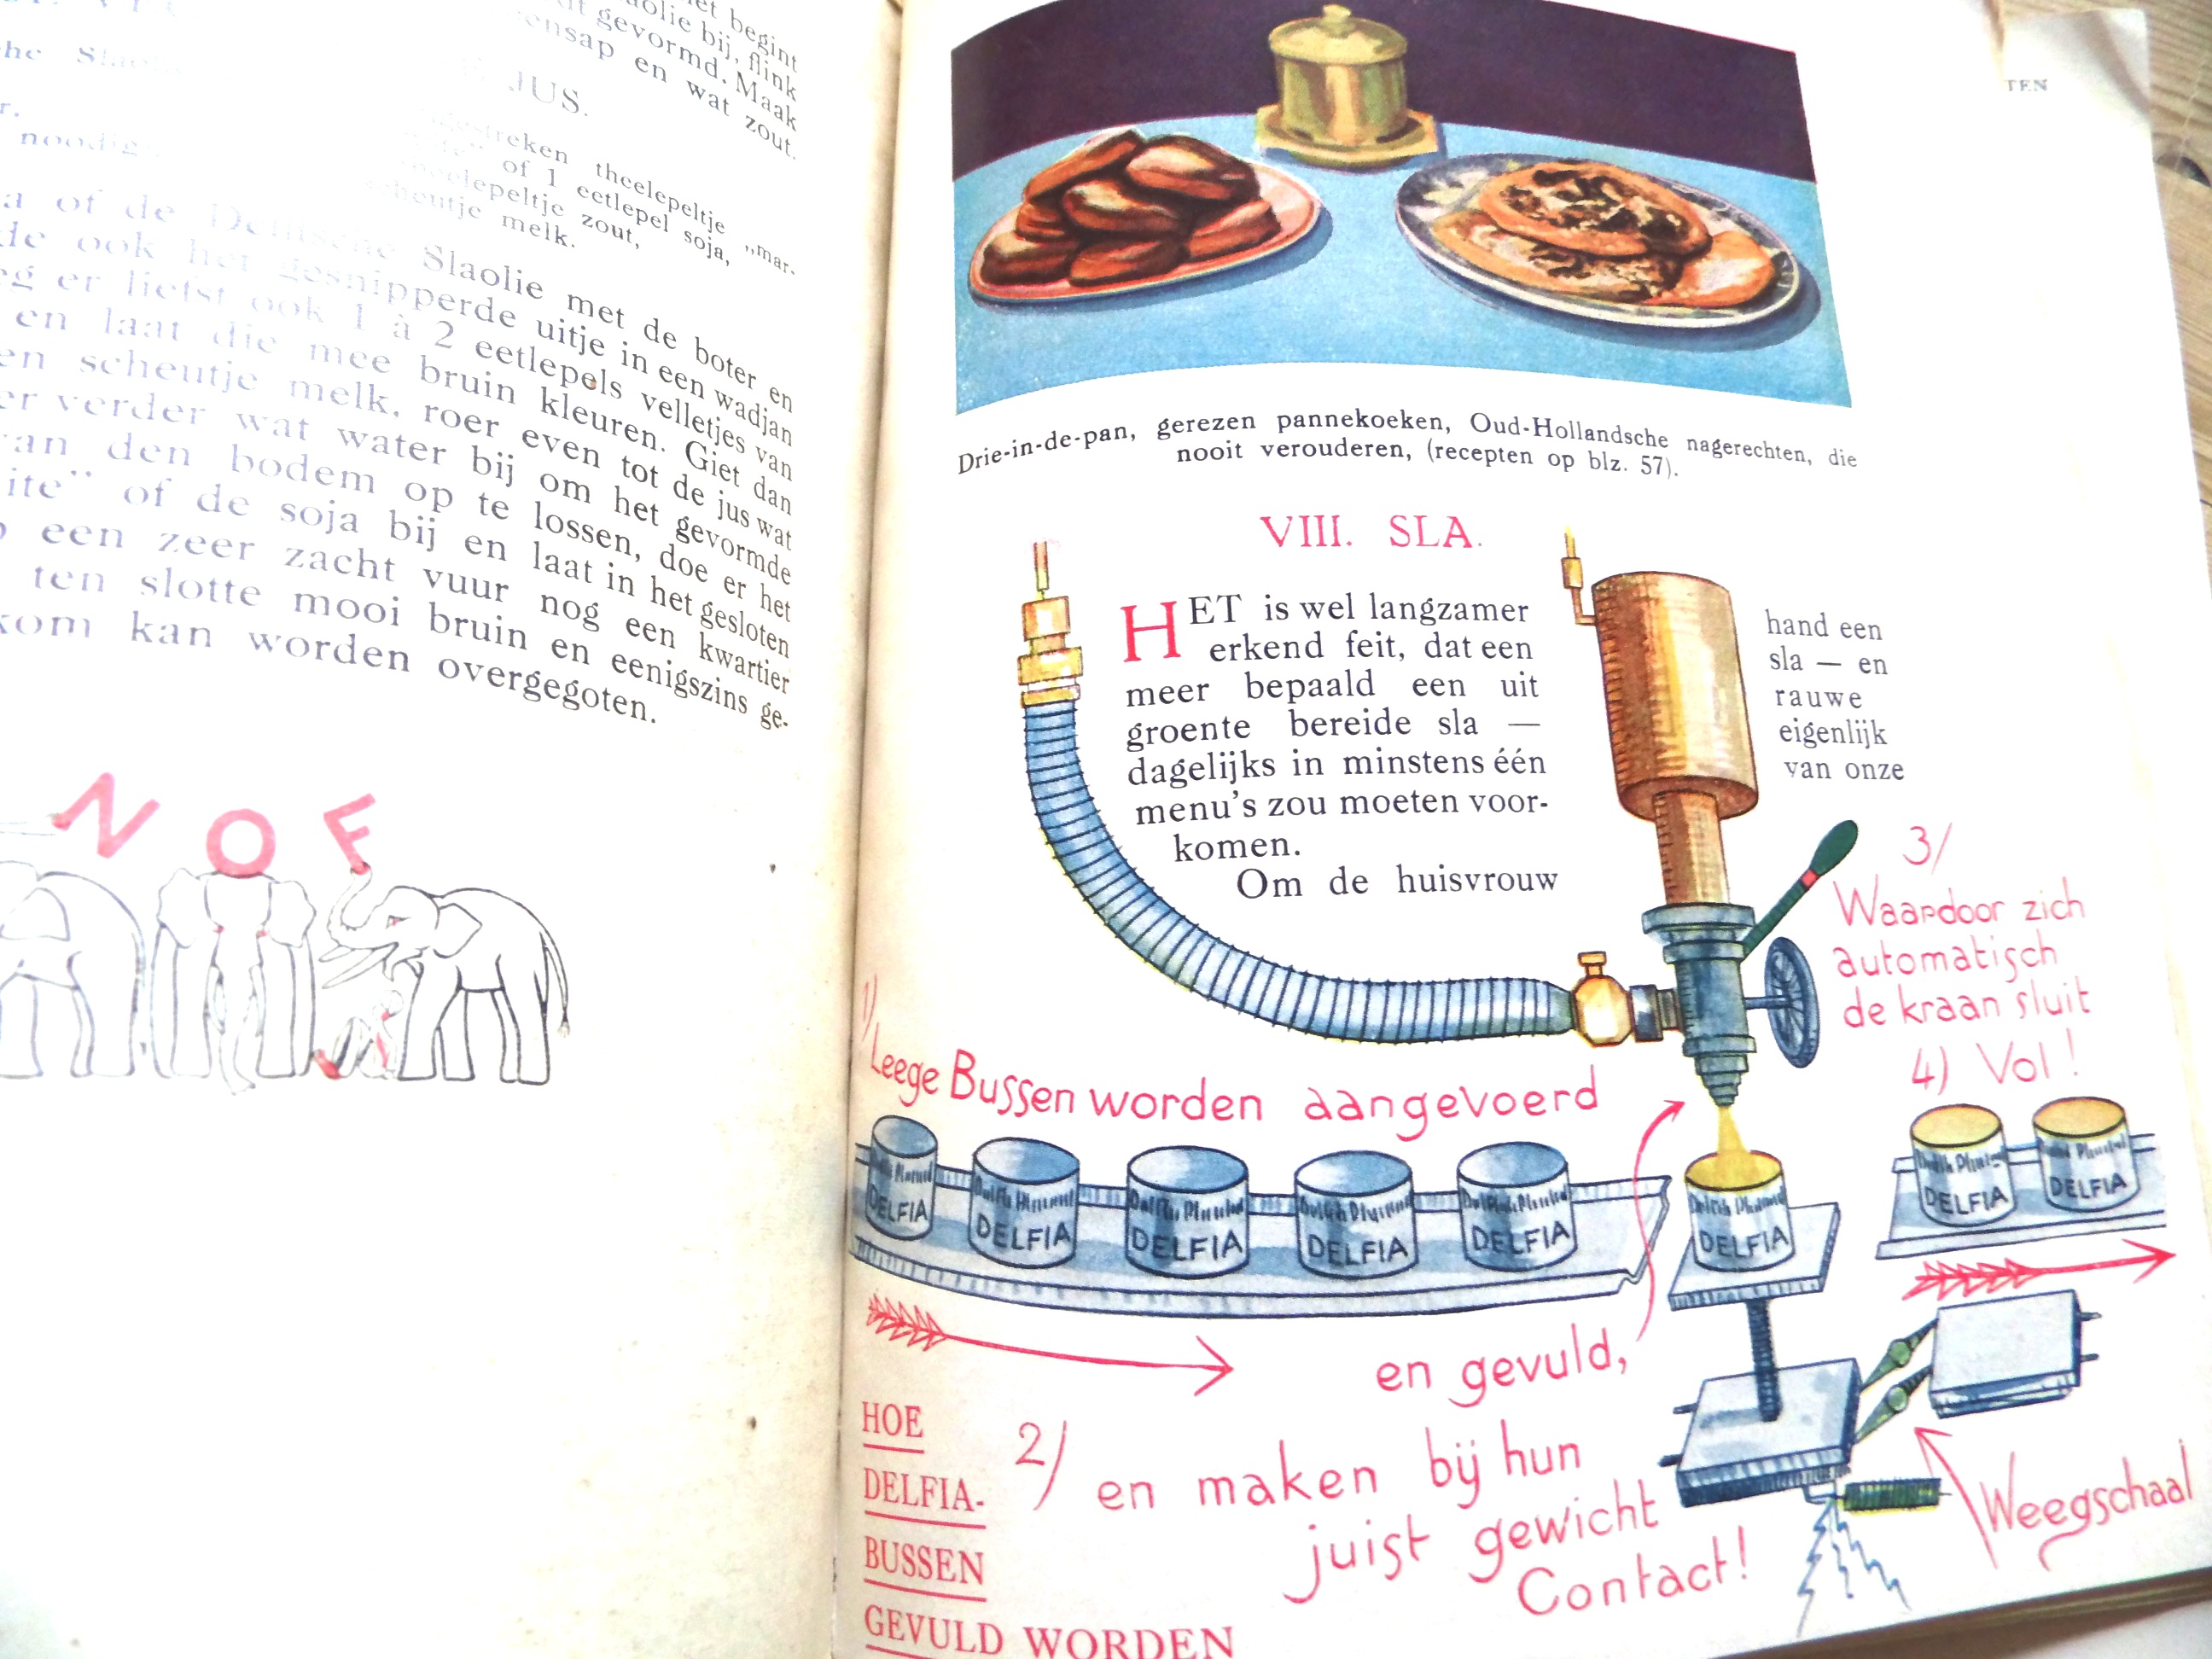 et begint
olie bij, flink
gevormd. Maak
ensap en wat zout.
JUS.
gestreken theelepeltje „mar-
of 1 eetlepel soja,
theelepeltje zout,
scheutje melk.
noodig
a of de Delftsche Slaolie met de boter en
de ook het gesnipperde uitje in een wadjan
eg er liefst ook 1 à 2 eetlepels velletjes van
en laat die mee bruin kleuren. Giet dan
en scheutje melk, roer even tot de jus wat
er verder wat water bij om het gevormde
van den bodem op te lossen, doe er het
ite” of de soja bij en laat in het gesloten
een zeer zacht vuur nog een kwartier
ten slotte mooi bruin en eenigszins ge-
kom kan worden overgegoten.
N O F
TEN
Drie-in-de-pan, gerezen pannekoeken, Oud-Hollandsche nagerechten, die
nooit verouderen, (recepten op blz. 57).
VIII. SLA.
HET is wel langzamer
erkend feit, dat een
meer bepaald een uit
groente bereide sla —
dagelijks in minstens één
menu’s zou moeten voor-
komen.
Om de huisvrouw
hand een
sla — en
rauwe
eigenlijk
van onze
1) Leege Bussen worden aangevoerd
3/
Waardoor zich
automatisch
de kraan sluit
4) Vol!
DELFIA
DELFIA
DELFIA
DELFIA
DELFIA
DELFIA
DELFIA
DELFIA
en gevuld,
2/ en maken bij hun
juist gewicht
Contact!
Weegschaal
HOE
DELFIA-
BUSSEN
GEVULD WORDEN